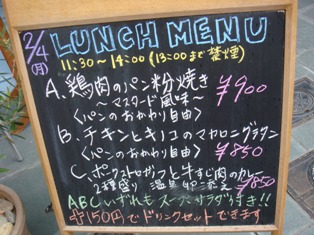 2/4
(月)
LUNCH MENU
11:30～14:00 (13:00まで禁煙)
A. 鶏肉のパン粉焼き
～マスタード風味～
¥900
〈パンのおかわり自由〉
B. チキンとキノコのマカロニグラタン
〈パンのおかわり自由〉
¥850
C. ポークストロガノフと牛すじ肉のカレー
2種盛り 温泉卵添え ¥850
ABCいずれもスープ、サラダつき!!
+150円でドリンクセットできます